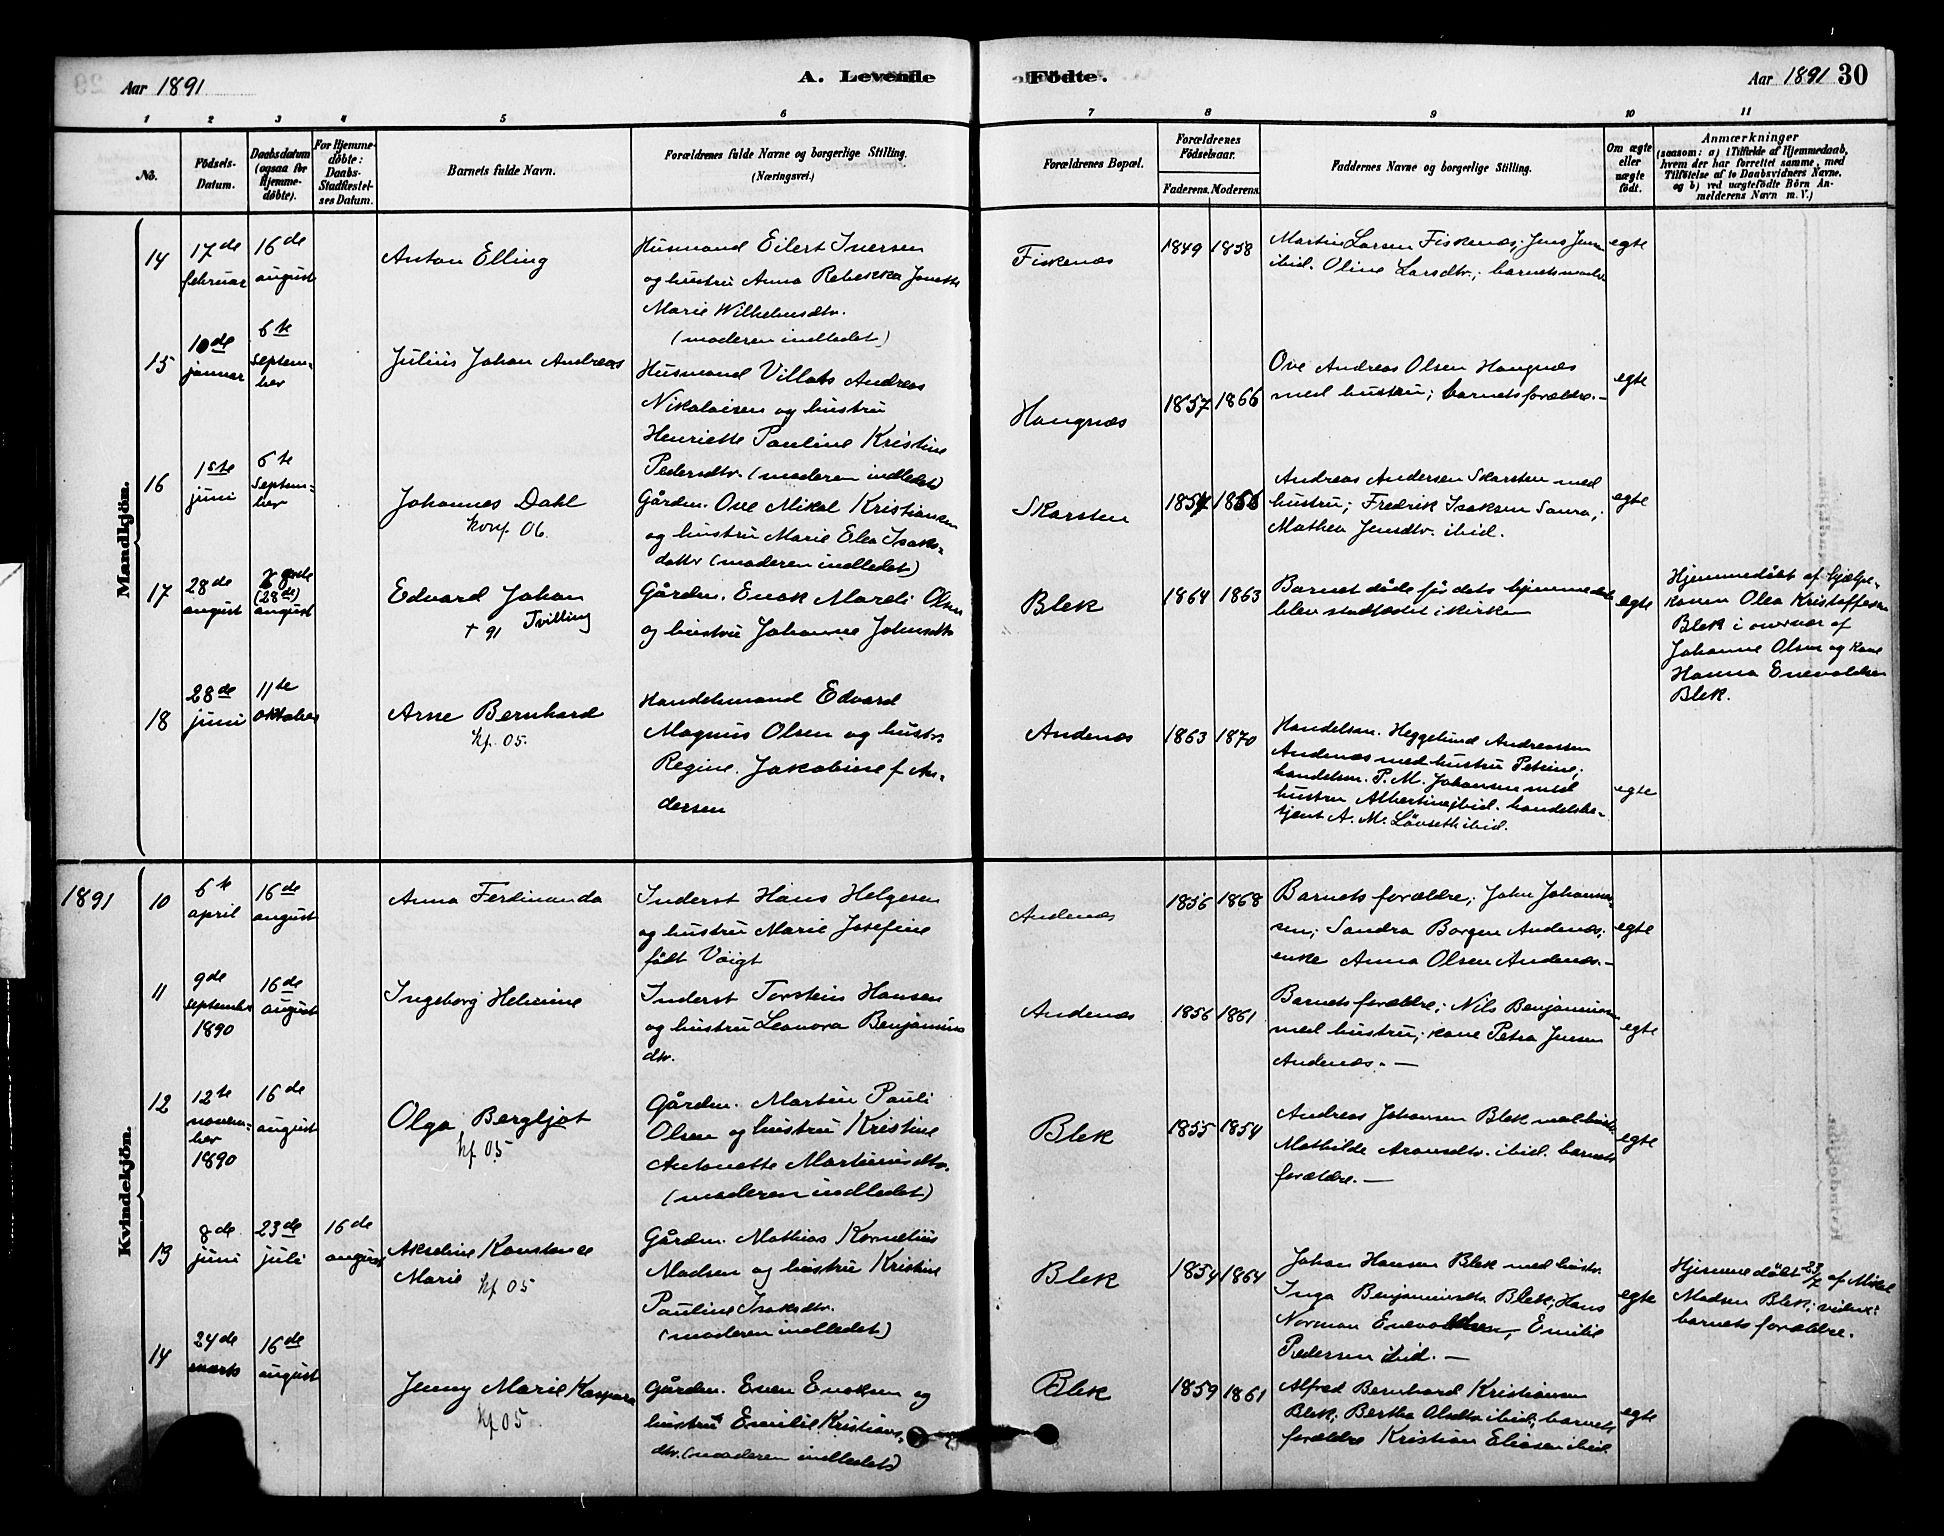 Aar 1891
A. Levende
Födte.
Aar 1891 30
1 2 3 4 5 6 7 8 9 10 11
No.
Födsels-
Datum.
Daabsdatum
(ogsaa for
Hjemme-
döbte).
For Hjemme-
döbte:
Daabs-
Stadfæstel-
ses Datum.
Barnets fulde Navn.
Forældrenes fulde Navne og borgerlige Stilling.
(Næringsvei.)
Forældrenes Bopæl.
Forældrenes
Födselsaar.
Faderens. Moderens.
Faddernes Navne og borgerlige Stilling.
Om ægte
eller
uægte
födt.
Anmærkninger
(saasom: a) i Tilfælde af Hjemmedaab,
hvem der har forrettet samme, med
Tilföielse af to Daabsvidners Navne.
og b) ved uægtefödte Börn An-
melderens Navn m. V.)
Mandkjön.
14
17de
februar
16de
august
Anton Elling
Husmand Eilert Iversen
og hustru Anna Rebekka Janette
Marie Wilhelmsdtr.
(moderen indledet)
Fiskenæs
1849 1858
Martin Larsen Fiskenæs; Jens
ibid. Oline Larsdtr.; barnets moder
egte
15
10de
januar
6te
septem-
ber
Julius Johan Andreas
Husmand Villats Andreas
Nikolaisen og hustru
Henriette Pauline Kristine
Pedersdtr. (moderen indledet)
Haugnæs
1857 1866
Ove Andreas Olsen Haugnæs
med hustru; barnets forældre.-
egte
16
1ste
juni
6te
septem-
ber
Johannes Dahl
konf. 06.
Gården. Ove Mikal Kristiansen
og hustru Marie Elea Isaks-
datter (moderen indledet)
Skarsten
1854 1856
Andreas Andersen Skarsten med
hustru; Fredrik Isaksen Saura;
Mathea Jensdtr. ibid.
egte
17
28de
august
(28de)
august
Edvard Johan
+ 91 Tvilling
Gården. Enok Mareli Olsen
og hustru Johanne Johnsdtr
Blek
1864 1863
Barnet döde för dets hjemmedåb
blev stadfæstet i kirken
egte
Hjemmedöbt af hjælpe-
konen Olea Kristoffersen
Blek i overvær af
Johanne Olsen og kone
Hanna Enevoldsen
Blek.
18
28de
juni
11te
oktober
Arne Bernhard
kf. 05.
Handelsmand Edvard
Magnus Olsen og hustru
Regine Jakobine f. An-
dersen
Andenæs
1863 1870
Handelsm. Heggelund Andreassen
Andenæs med hustru Petrine;
handelsm. P. M. Johansen med
hustru Albertine ibid. handelsbe-
tjent A. M. Lövseth ibid.
egte
1891
Kvindekjön.
10
6te
april
16de
august
Anna Ferdinanda
Inderst Hans Helgesen
og hustru Marie Josefine
födt Voigt
Andenæs
1856 1868
Barnets forældre; John Johannes-
sen; Sandra Borgen Andenæs;
enke Anna Olsen Andenæs.-
egte
11
9de
september
1890
16de
august
Ingeborg Helmine
Inderst Torstein Hansen
og hustru Leonora Benjamins
dtr.
Andenæs
1856 1861
Barnets forældre; Nils Benjaminsen
med hustru; kone Petra Jensen
Andenæs.-
egte
12
12te
novem-
ber
1890
16de
august
Olga Bergljot
kf 05
Gården. Martin Pauli
Olsen og hustru Kristine
Antonette Martinusdtr.
(moderen indledet)
Blek
1855 1854
Andreas Johansen Blek med hustru
Mathilde Aronsdtr. ibid. barnets
forældre.-
egte
13
8de
juni
23de
juli
16de
august
Akseline Konstance
Marie kf 05
Gården. Mathias Kornelius
Madsen og hustru Kristine
Pauline Isaksdtr.
(moderen indledet)
Blek
1854 1864
Johan Hansen Blek med hustr.
Inga Benjaminsdtr Blek; Hans
Norman Enevoldsen, Emilie
Pedersen ibid.-
egte
Hjemmedöbt 23/7 af Mikal
Madsen Blek; vidner:
barnets forældre.
14
24de
marts
16de
august
Jenny Marie Kaspara
kf 05
Gården. Even Enoksen og
hustru Emilie Kristians-
dtr. (moderen indledet)
Blek
1859 1861
Alfred Bernhard Kristiansen
Blek; Bertha Olsdtr. ibid; barnets
forældre Kristian Eliasen ibid
egte